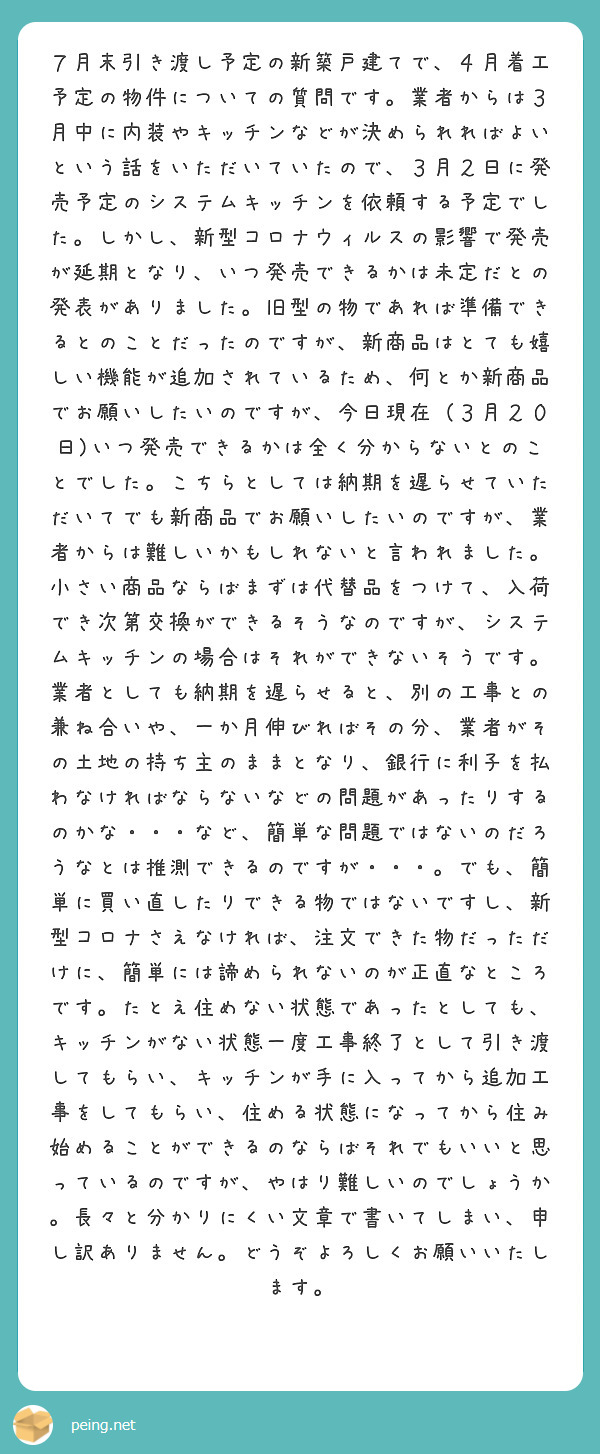 ７月末引き渡し予定の新築戸建てで、４月着工
予定の物件についての質問です。業者からは３
月中に内装やキッチンなどが決められればよい
という話をいただいていたので、３月２日に発
売予定のシステムキッチンを依頼する予定でし
た。しかし、新型コロナウィルスの影響で発売
が延期となり、いつ発売できるかは未定だとの
発表がありました。旧型の物であれば準備でき
るとのことだったのですが、新商品はとても嬉
しい機能が追加されているため、何とか新商品
でお願いしたいのですが、今日現在（３月２０
日)いつ発売できるかは全く分からないとのこ
とでした。こちらとしては納期を遅らせていた
だいてでも新商品でお願いしたいのですが、業
者からは難しいかもしれないと言われました。
小さい商品ならばまずは代替品をつけて、入荷
でき次第交換ができるそうなのですが、システ
ムキッチンの場合はそれができないそうです。
業者としても納期を遅らせると、別の工事との
兼ね合いや、一か月伸びればその分、業者がそ
の土地の持ち主のままとなり、銀行に利子を払
わなければならないなどの問題があったりする
のかな・・・など、簡単な問題ではないのだろ
うなとは推測できるのですが・・・。でも、簡
単に買い直したりできる物ではないですし、新
型コロナさえなければ、注文できた物だっただ
けに、簡単には諦められないのが正直なところ
です。たとえ住めない状態であったとしても、
キッチンがない状態一度工事終了として引き渡
してもらい、キッチンが手に入ってから追加工
事をしてもらい、住める状態になってから住み
始めることができるのならばそれでもいいと思
っているのですが、やはり難しいのでしょうか
。長々と分かりにくい文章で書いてしまい、申
し訳ありません。どうぞよろしくお願いいたし
ます。
peing.net